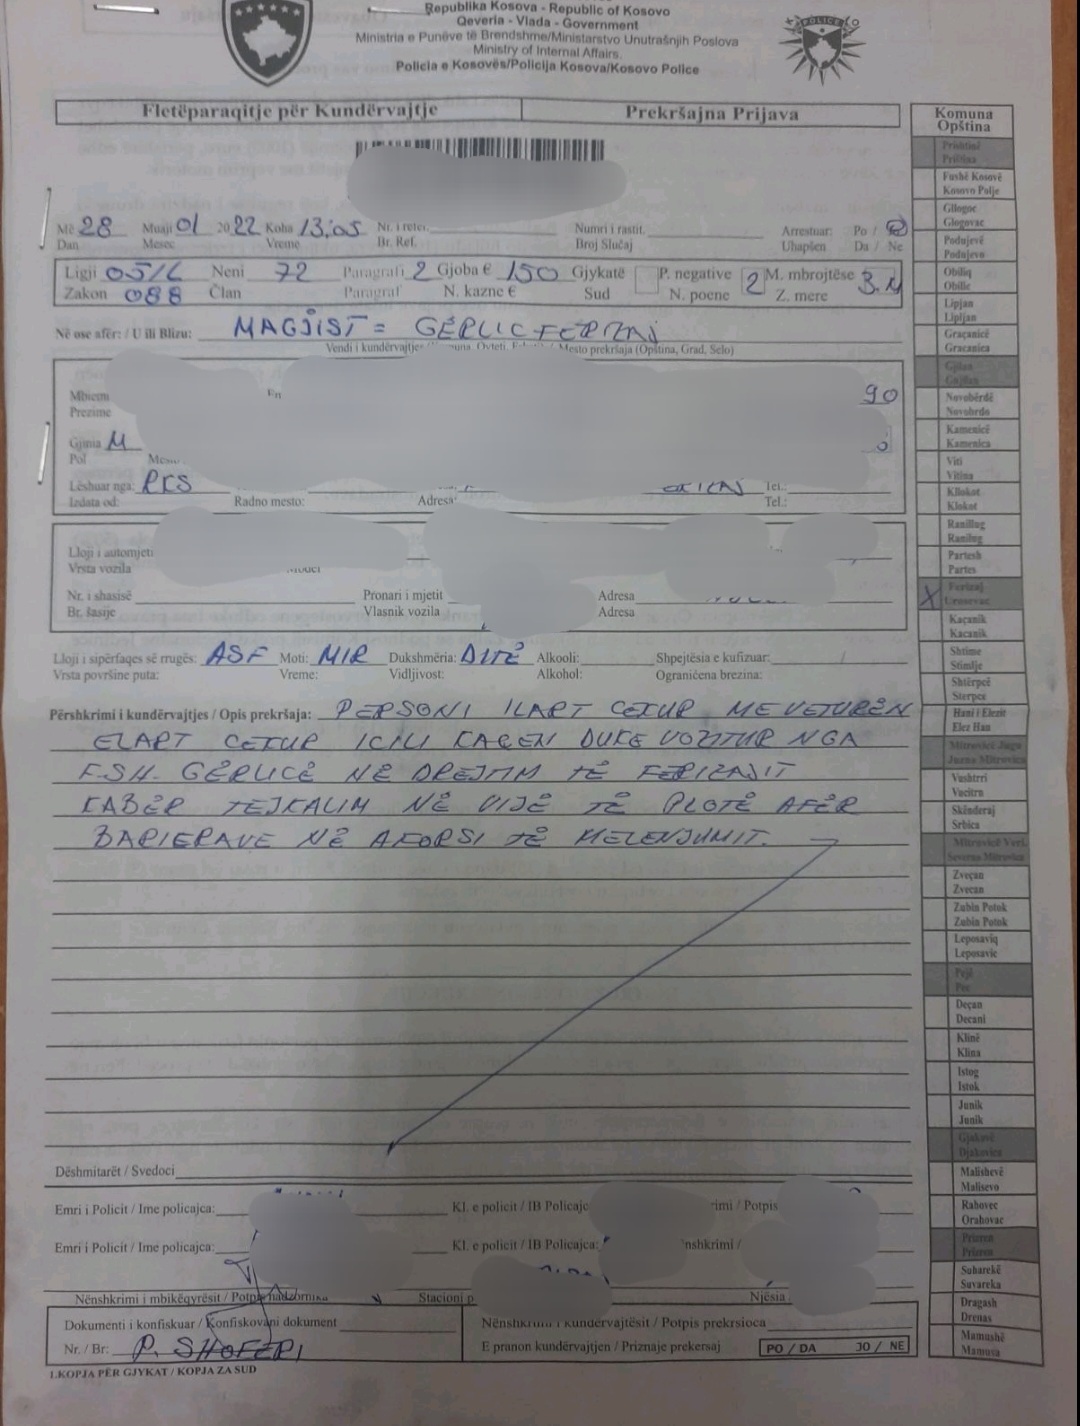 Republika Kosova - Republic of Kosovo
Qeveria - Vlada - Government
Ministria e Punëve të Brendshme/Ministarstvo Unutrašnjih Poslova
Ministry of Internal Affairs.
Policia e Kosovës/Policija Kosova/Kosovo Police
POLICE
Fletëparaqitje për Kundërvajtje Prekršajna Prijava
Më 28 Muaji 01 2022 Koha 13:05 Nr. i refer. Numri i rastit. Arrestuar: Po / Jo
Dan Mesec Vreme Br. Ref. Broj Slučaj Uhapšen Da / Ne
Ligji 05/L Neni 72 Paragrafi 2 Gjoba € 150 Gjykatë P. negative 2 M. mbrojtëse 3.M
Zakon 088 Član Paragraf N. kazne € Sud N. poene Z. mere
Në ose afër: / U ili Blizu: MAGJIST = GËRLIC-FERIZAJ
Vendi i kundërvajtjes Mesto prekršaja (Opština, Grad, Selo)
Mbiem 90
Prezime
Gjinia M
Pol
Lëshuar nga: PKS Tel.:
Izdata od: Radno mesto: Adresa: Tel.:
Lloji i automjeti
Vrsta vozila
Nr. i shasisë Pronari i mjetit Adresa
Br. šasije Vlasnik vozila Adresa
Lloji i sipërfaqes së rrugës: ASF Moti: MIR Dukshmëria: DITË Alkooli: Shpejtësia e kufizuar: /
Vrsta površine puta: Vreme: Vidljivost: Alkohol: Ograničena brezina:
Përshkrimi i kundërvajtjes / Opis prekršaja: PERSONI ILART CEKUR ME VETURËN
ELART CEKUR ICILI KAQEN DUKE VOZITUR NGA
F.SH. GËRLICË NË DREJTIM TË FERIZAJIT
KABËR TEJKALIM NË VIJË TË PLOTË AFËR
BARIERAVE NË AFORSI TË KELENJUMIT.
Dëshmitarët / Svedoci
Emri i Policit / Ime policajca: Kl. e policit / IB Policajc rimi / Potpis
Emri i Policit / Ime policajca: Kl. e policit / IB Policajca: nshkrimi /
Nënshkrimi i mbikëqyrësit / Potpis nadzornika Stacioni p Njësia
Dokumenti i konfiskuar / Konfiskovani dokument Nënshkrimi i kundërvajtësit / Potpis prekrsioca
Nr. / Br: P. SHOFERI E pranon kundërvajtjen / Priznaje prekersaj PO / DA JO / NE
1.KOPJA PËR GJYKAT / KOPJA ZA SUD
Komuna
Opština
Prishtinë
Priština
Fushë Kosovë
Kosovo Polje
Gllogoc
Glogovac
Podujevë
Podujevo
Obiliq
Obilic
Lipjan
Lipljan
Graçanicë
Gracanica
Gjilan
Gnjilan
Novobërdë
Novobrdo
Kamenicë
Kamenica
Viti
Vitina
Kllokot
Klokot
Ranillug
Ranilug
Partesh
Partes
X Ferizaj
Urosevac
Kaçanik
Kacanik
Shtime
Stimlje
Shtërpcë
Sterpce
Hani i Elezit
Elez Han
Mitrovicë Jugu
Juzna Mitrovica
Vushtrri
Vucitrn
Skënderaj
Srbica
Mitrovicë Veri.
Severna Mitrovica
Zveçan
Zvecan
Zubin Potok
Zubin Potok
Leposaviq
Leposavic
Pejë
Pec
Deçan
Decani
Klinë
Klina
Istog
Istok
Junik
Junik
Gjakovë
Djakovica
Malishevë
Malisevo
Rahovec
Orahovac
Prizren
Prizren
Suharekë
Suvareka
Dragash
Drenas
Mamushë
Mamusa